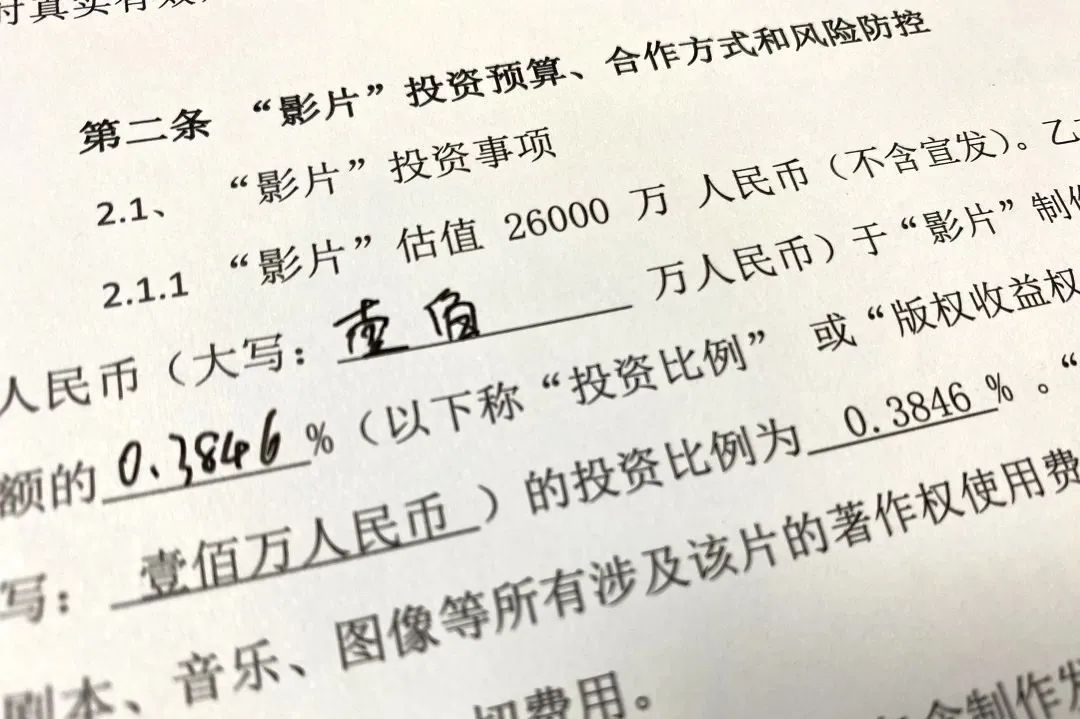 第二条 “影片”投资预算、合作方式和风险防控
2.1、 “影片”投资事项
2.1.1 “影片”估值 26000 万 人民币（不含宣发）。乙
人民币（大写：壹佰 万人民币）于“影片”制作
额的0.3846%（以下称“投资比例” 或“版权收益权
写： 壹佰万人民币 ）的投资比例为 0.3846 %。“
剧本、音乐、图像等所有涉及该片的著作权使用费
切费用。
制作发